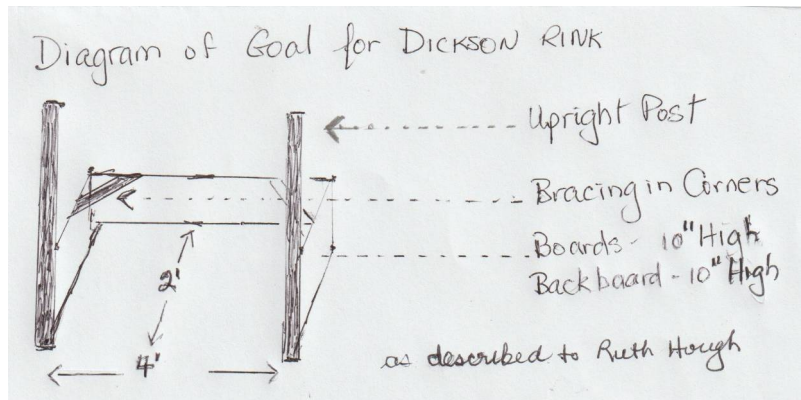 Diagram of Goal for DICKSON RINK
Upright Post
Bracing in Corners
Boards - 10" High
Backboard - 10" High
2'
4'
as described to Ruth Hough